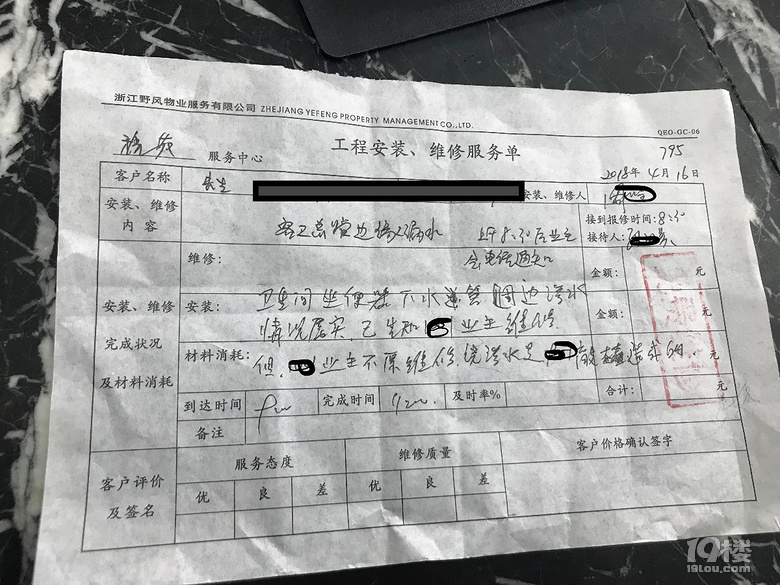 浙江野风物业服务有限公司 ZHEJIANG YEFENG PROPERTY MANAGEMENT CO.,LTD.
QEO-GC-06
服务中心 工程安装、维修服务单 795
客户名称 2018年4月16日
安装、维修人
安装、维修内容 漏水 接到报修时间:8:30
接待人:
维修: 会电话通知 金额: 元
安装、维修完成状况及材料消耗
安装: 卫生间坐便器下水道管周边渗水 金额: 元
情况属实,已告知 业主维修,
材料消耗: 但, 业主不 维修, 渗水是 造成的 元
到达时间 完成时间 及时率% 合计: 元
备注
客户评价及签名 服务态度 维修质量 客户价格确认签字
优 良 差 优 良 差
19楼
19lou.com